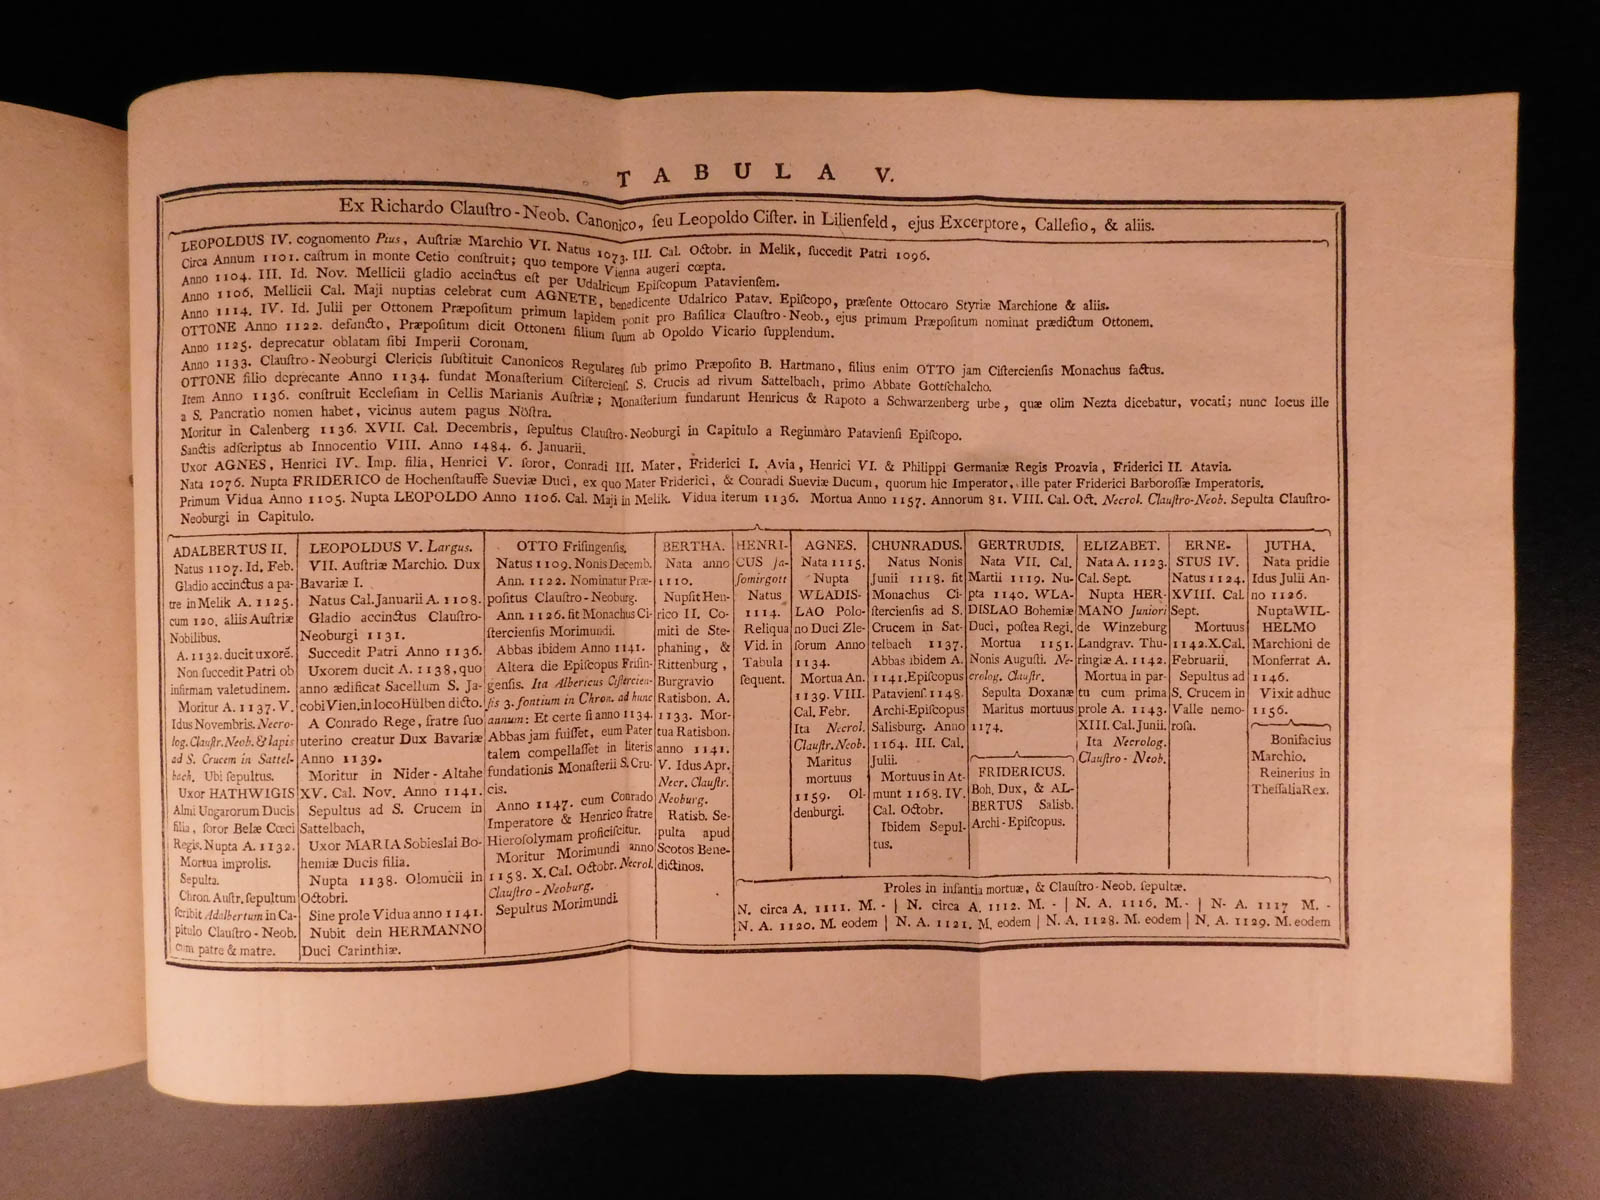 TABULA V.
Ex Richardo Clauſtro-Neob. Canonico, ſeu Leopoldo Ciſter. in Lilienfeld, ejus Excerptore, Calleſio, & aliis.
LEOPOLDUS IV. cognomento Pius, Auſtriæ Marchio VI. Natus 1073. III. Cal. Octobr. in Melik, ſuccedit Patri 1096.
Circa Annum 1101. caſtrum in monte Cetio conſtruit; quo tempore Vienna augeri cœpta.
Anno 1104. III. Id. Nov. Mellicii gladio accinctus eſt per Udalricum Epiſcopum Patavienſem.
Anno 1106. Mellicii Cal. Maji nuptias celebrat cum AGNETE, benedicente Udalrico Patav. Epiſcopo, præſente Ottocaro Styriæ Marchione & aliis.
Anno 1114. IV. Id. Julii per Ottonem Præpoſitum primum lapidem ponit pro Baſilica Clauſtro-Neob., ejus primum Præpoſitum nominat prædictum Ottonem.
OTTONE Anno 1122. defuncto, Præpoſitum dicit Ottonem filium ſuum ab Opoldo Vicario ſupplendum.
Anno 1125. deprecatur oblatam ſibi Imperii Coronam.
Anno 1133. Clauſtro-Neoburgi Clericis ſubſtituit Canonicos Regulares ſub primo Præpoſito B. Hartmano, filius enim OTTO jam Ciſtercienſis Monachus factus.
OTTONE filio deprecante Anno 1134. fundat Monaſterium Ciſtercienſ. S. Crucis ad rivum Sattelbach, primo Abbate Gottſchalcho.
Item Anno 1136. conſtruit Eccleſiam in Cellis Marianis Auſtriæ; Monaſterium fundarunt Henricus & Rapoto a Schwarzenberg urbe, quæ olim Nezta dicebatur, vocati; nunc locus ille
a S. Pancratio nomen habet, vicinus autem pagus Nöſtra.
Moritur in Calenberg 1136. XVII. Cal. Decembris, ſepultus Clauſtro-Neoburgi in Capitulo a Reginmaro Patavienſi Epiſcopo.
Sanctis adſcriptus ab Innocentio VIII. Anno 1484. 6. Januarii.
Uxor AGNES, Henrici IV. Imp. filia, Henrici V. ſoror, Conradi III. Mater, Friderici I. Avia, Henrici VI. & Philippi Germaniæ Regis Proavia, Friderici II. Atavia.
Nata 1076. Nupta FRIDERICO de Hochenſtauffe Sueviæ Duci, ex quo Mater Friderici, & Conradi Sueviæ Ducum, quorum hic Imperator, ille pater Friderici Barboroſſæ Imperatoris.
Primum Vidua Anno 1105. Nupta LEOPOLDO Anno 1106. Cal. Maji in Melik. Vidua iterum 1136. Mortua Anno 1157. Annorum 81. VIII. Cal. Oct. Necrol. Clauſtro-Neob. Sepulta Clauſtro-
Neoburgi in Capitulo.
ADALBERTUS II.
Natus 1107. Id. Feb.
Gladio accinctus a pa-
tre in Melik A. 1125.
cum 120. aliis Auſtriæ
Nobilibus.
A. 1132. ducit uxorē.
Non ſuccedit Patri ob
infirmam valetudinem.
Moritur A. 1137. V.
Idus Novembris. Necro-
log. Clauſtr. Neob. & lapis
ad S. Crucem in Sattel-
bach, Ubi ſepultus.
Uxor HATHWIGIS
Almi Ungarorum Ducis
filia, ſoror Belæ Cœci
Regis. Nupta A. 1132.
Mortua improlis.
Sepulta.
Chron. Auſtr. ſepultum
ſcribit Adalbertum in Ca-
pitulo Clauſtro-Neob.
cum patre & matre.
LEOPOLDUS V. Largus.
VII. Auſtriæ Marchio. Dux
Bavariæ I.
Natus Cal. Januarii A. 1108.
Gladio accinctus Clauſtro-
Neoburgi 1131.
Succedit Patri Anno 1136.
Uxorem ducit A. 1138, quo
anno ædificat Sacellum S. Ja-
cobi Vien, in loco Hülben dicto.
A Conrado Rege, fratre ſuo
uterino creatur Dux Bavariæ
Anno 1139.
Moritur in Nider-Altahe
XV. Cal. Nov. Anno 1141.
Sepultus ad S. Crucem in
Sattelbach,
Uxor MARIA Sobieslai Bo-
hemiæ Ducis filia.
Nupta 1138. Olomucii in
Octobri.
Sine prole Vidua anno 1141.
Nubit dein HERMANNO
Duci Carinthiæ.
OTTO Friſingenſis.
Natus 1109. Nonis Decemb.
Ann. 1122. Nominatur Præ-
poſitus Clauſtro-Neoburg.
Ann. 1126. fit Monachus Ci-
ſtercienſis Morimundi.
Abbas ibidem Anno 1141.
Altera die Epiſcopus Friſin-
genſis. Ita Albericus Ciſtercien-
ſis 3. fontium in Chron. ad hunc
annum: Et certe ſi anno 1134.
Abbas jam fuiſſet, eum Pater
talem compellaſſet in literis
fundationis Monaſterii S. Cru-
cis.
Anno 1147. cum Conrado
Imperatore & Henrico fratre
Hieroſolymam proficiſcitur.
Moritur Morimundi anno
1158. X. Cal. Octobr. Necrol.
Clauſtro-Neoburg.
Sepultus Morimundi.
BERTHA.
Nata anno
1110.
Nupſit Hen-
rico II. Co-
miti de Ste-
phaning, &
Rittenburg,
Burgravio
Ratisbon. A.
1133. Mor-
tua Ratisbon.
anno 1141.
V. Idus Apr.
Necr. Clauſtr.
Neoburg.
Ratisb. Se-
pulta apud
Scotos Bene-
dictinos.
HENRI-
CUS Ja-
ſomirgott
Natus
1114.
Reliqua
Vid. in
Tabula
ſequent.
AGNES.
Nata 1115.
Nupta
WLADIS-
LAO Polo-
no Duci Zle-
ſorum Anno
1134.
Mortua An.
1139. VIII.
Cal. Febr.
Ita Necrol.
Clauſtr. Neob.
Maritus
mortuus
1159. Ol-
denburgi.
CHUNRADUS.
Natus Nonis
Junii 1118. fit
Monachus Ci-
ſtercienſis ad S.
Crucem in Sat-
telbach 1137.
Abbas ibidem A.
1141. Epiſcopus
Patavienſ. 1148.
Archi-Epiſcopus
Salisburg. Anno
1164. III. Cal.
Julii.
Mortuus in At-
munt 1168. IV.
Cal. Octobr.
Ibidem Sepul-
tus.
GERTRUDIS.
Nata VII. Cal.
Martii 1119. Nu-
pta 1140. WLA-
DISLAO Bohemiæ
Duci, poſtea Regi.
Mortua 1151.
Nonis Auguſti. Ne-
crolog. Clauſtr.
Sepulta Doxanæ
Maritus mortuus
1174.
FRIDERICUS.
Boh. Dux, & AL-
BERTUS Salisb.
Archi-Epiſcopus.
ELIZABET.
Nata A. 1123.
Cal. Sept.
Nupta HER-
MANO Juniori
de Winzeburg
Landgrav. Thu-
ringiæ A. 1142.
Mortua in par-
tu cum prima
prole A. 1143.
XIII. Cal. Junii.
Ita Necrolog.
Clauſtro-Neob.
ERNE-
STUS IV.
Natus 1124.
XVIII. Cal.
Sept.
Mortuus
1142. X. Cal.
Februarii,
Sepultus ad
S. Crucem in
Valle nemo-
roſa.
JUTHA.
Nata pridie
Idus Julii An-
no 1126.
Nupta WIL-
HELMO
Marchioni de
Monferrat A.
1146.
Vixit adhuc
1156.
Bonifacius
Marchio.
Reinerius in
Theſſalia Rex.
Proles in infantia mortuæ, & Clauſtro-Neob. ſepultæ.
N. circa A. 1111. M. - | N. circa A. 1112. M. - | N. A. 1116. M. - | N- A. 1117 M. -
N. A. 1120. M. eodem | N. A. 1121. M. eodem | N. A. 1128. M. eodem | N. A. 1129. M. eodem